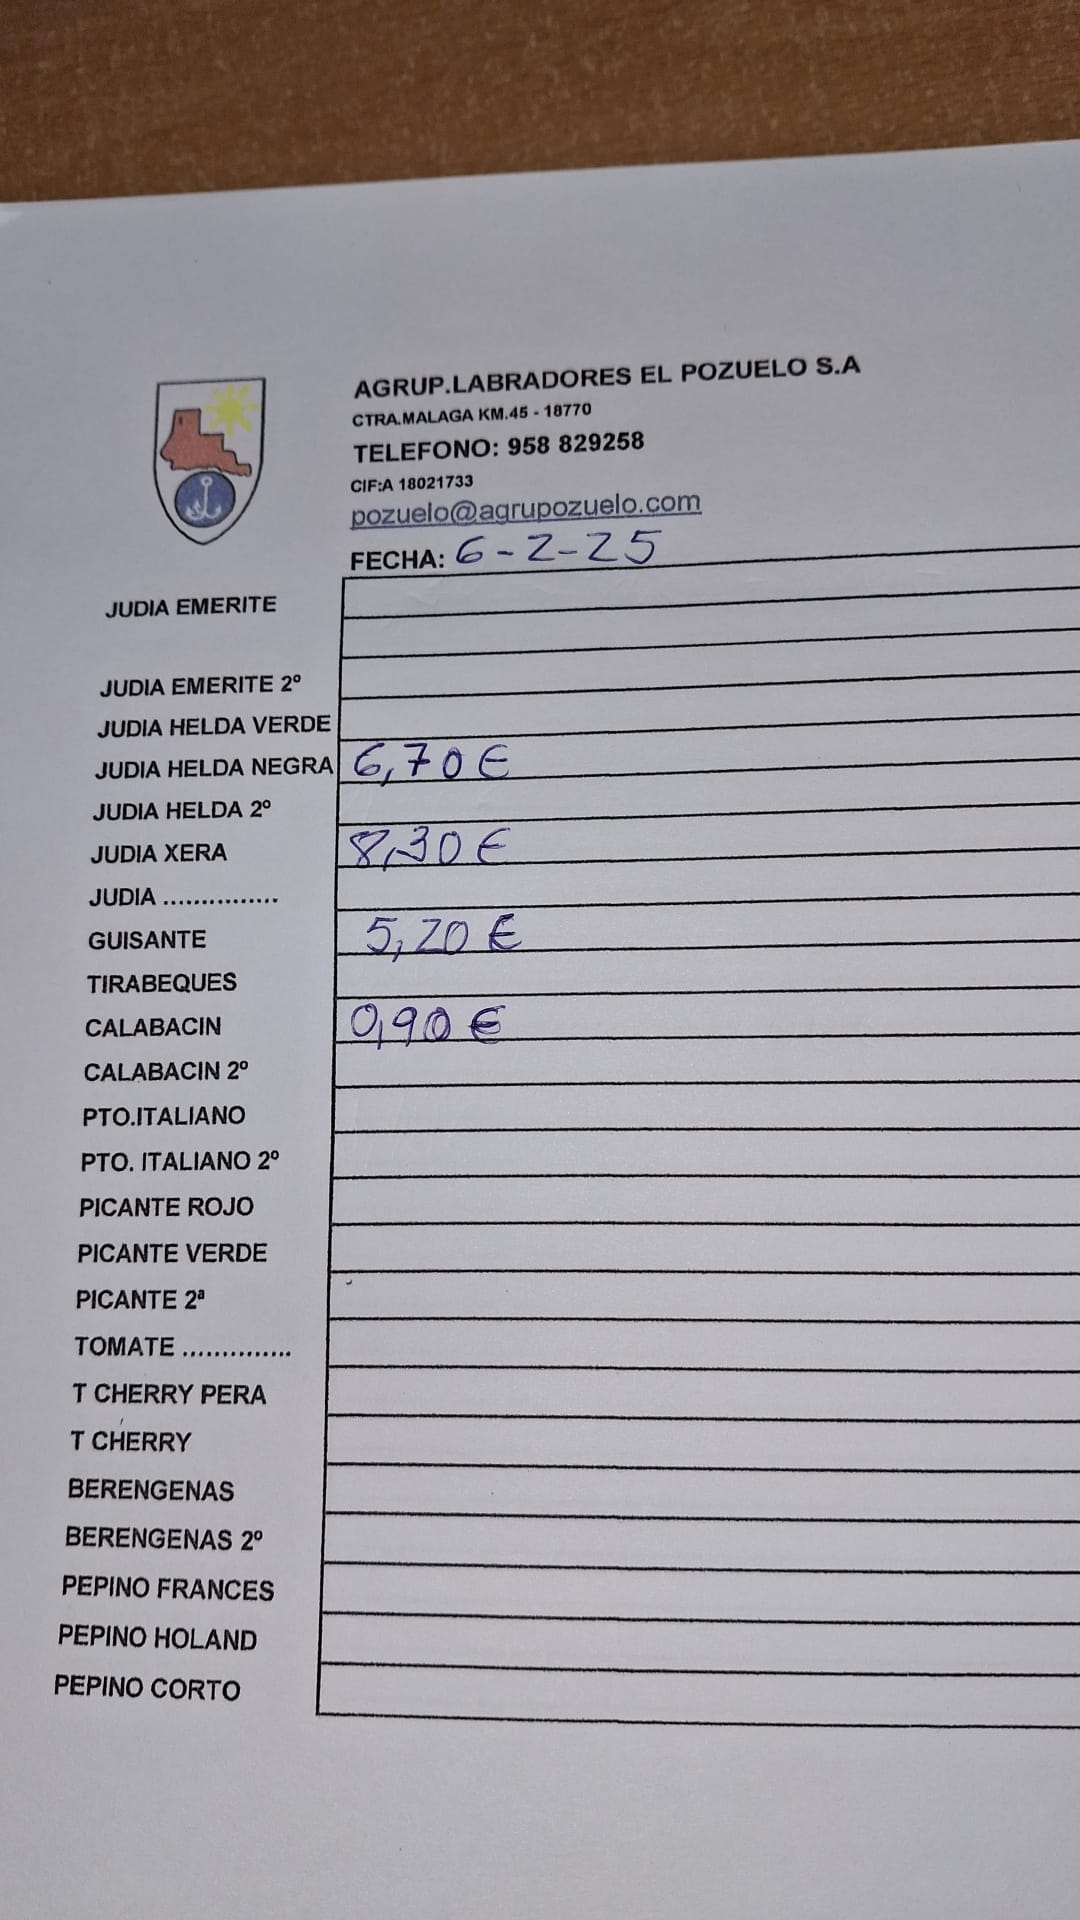 AGRUP.LABRADORES EL POZUELO S.A
CTRA.MALAGA KM.45 - 18770
TELEFONO: 958 829258
CIF:A 18021733
pozuelo@agrupozuelo.com
FECHA: 6-2-25
JUDIA EMERITE
JUDIA EMERITE 2º
JUDIA HELDA VERDE
JUDIA HELDA NEGRA 6,70 €
JUDIA HELDA 2º
JUDIA XERA 8,30 €
JUDIA ...............
GUISANTE 5,20 €
TIRABEQUES
CALABACIN 0,90 €
CALABACIN 2º
PTO.ITALIANO
PTO. ITALIANO 2º
PICANTE ROJO
PICANTE VERDE
PICANTE 2ª
TOMATE ..............
T CHERRY PERA
T CHERRY
BERENGENAS
BERENGENAS 2º
PEPINO FRANCES
PEPINO HOLAND
PEPINO CORTO